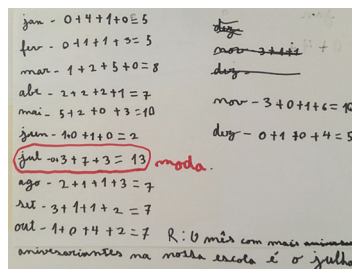 jan - 0+4+1+0=5
fev - 0+1+1+3=5
mar - 1+2+5+0=8
abr - 2+2+2+1=7
mai - 5+2+0+3=10
jun - 1+0+1+0=2
jul - 0+3+7+3=13 moda.
ago - 2+1+1+3=7
set - 3+1+1+2=7
out - 1+0+4+2=7
dez
nov - 3+1+1
dez -
nov - 3+0+1+6=10
dez - 0+1+0+4=5
R: O mês com mais
aniversariantes na nossa escola é o julho